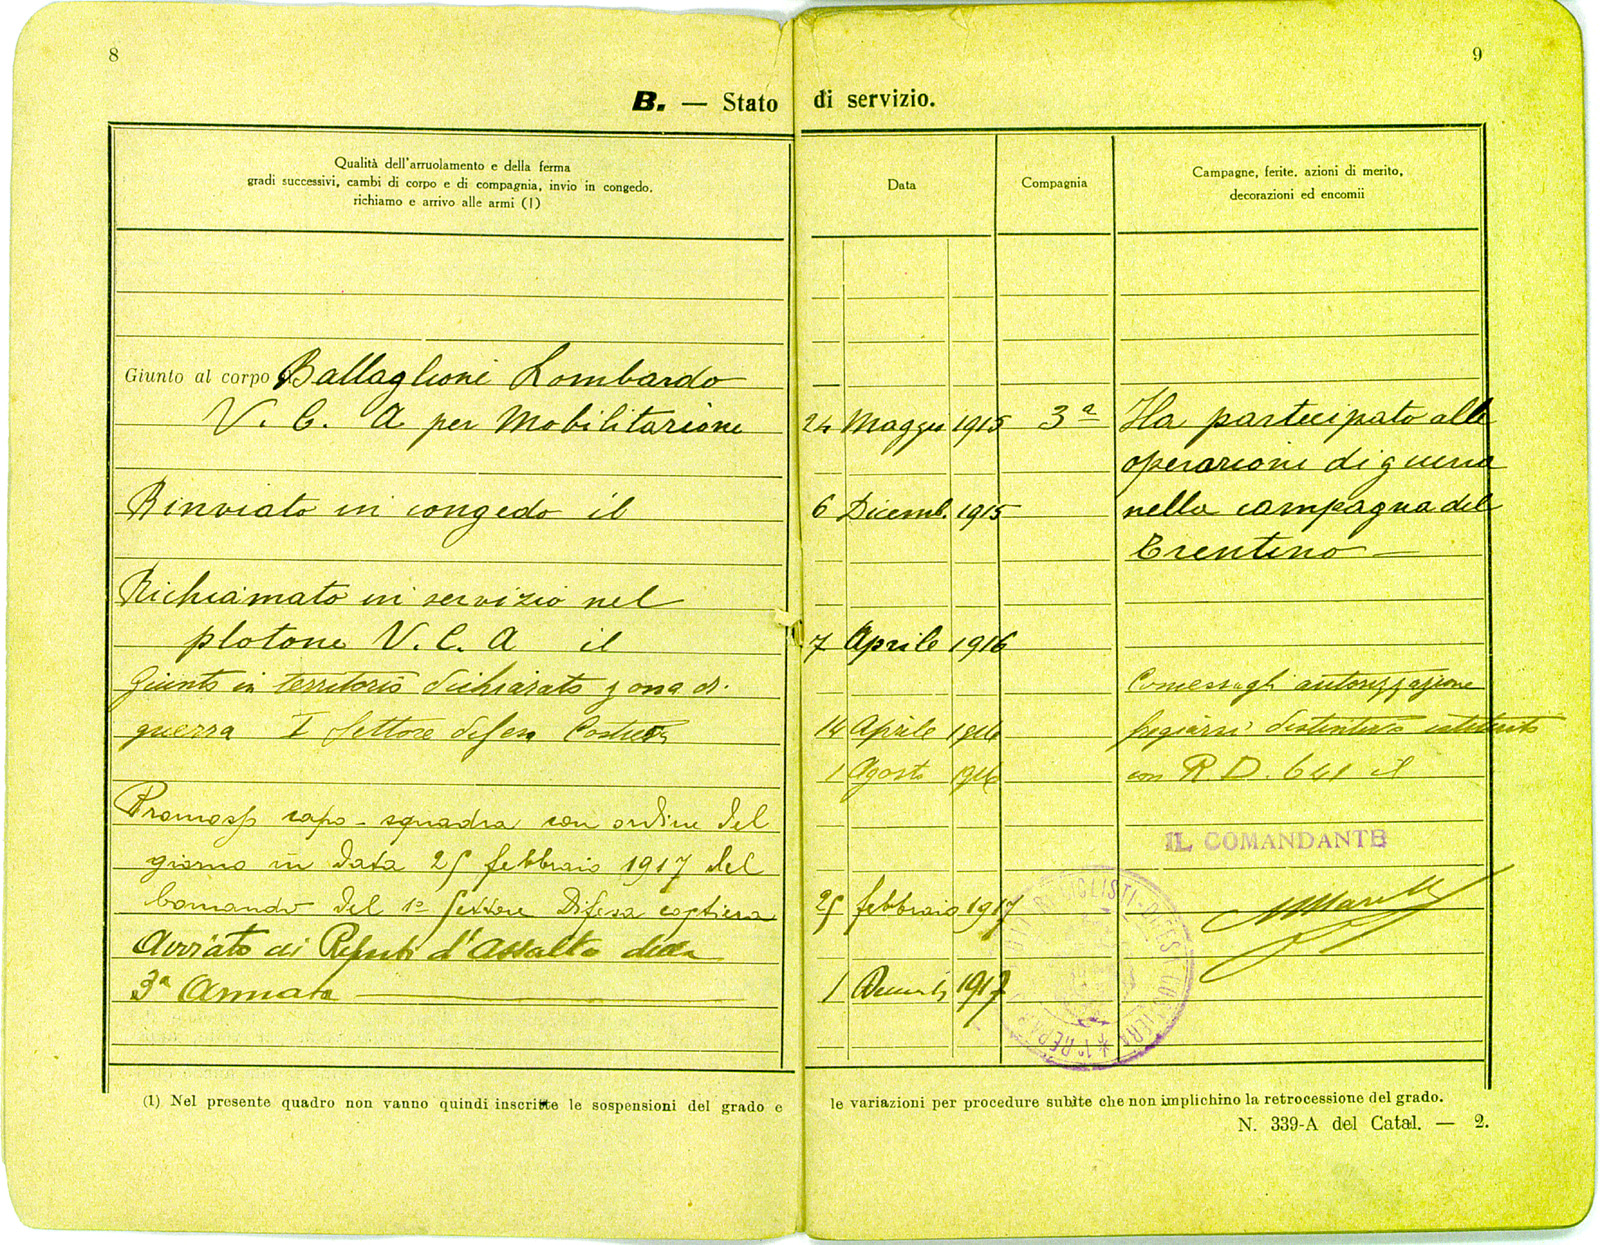 8
9
B. — Stato di servizio.
Qualità dell'arruolamento e della ferma
gradi successivi, cambi di corpo e di compagnia, invio in congedo.
richiamo e arrivo alle armi (1)
Data
Compagnia
Campagne, ferite, azioni di merito,
decorazioni ed encomii
Giunto al corpo Battaglione Lombardo
V. C. A per Mobilitazione
24 Maggio 1915
3ª
Ha partecipato alle
operazioni di guerra
Rinviato in congedo il
6 Dicemb. 1915
nella campagna del
Trentino —
Richiamato in servizio nel
plotone V. C. A il
7 Aprile 1916
Giunto in territorio dichiarato zona di
guerra I Settore difesa Costiera
14 Aprile 1916
1 Agosto 1916
autorizzazione
fregiarsi distintivo istituito
con R. D. 641 il
Promosso capo-squadra con ordine del
giorno in data 25 febbraio 1917 del
Comando del 1º Settore Difesa costiera
25 febbraio 1917
Avviato ai Reparti d'Assalto della
3ª Armata —
1 1917
IL COMANDANTE
CICLISTI - DIFESA COSTIERA * 1º REPAR
(1) Nel presente quadro non vanno quindi inscritte le sospensioni del grado e le variazioni per procedure subite che non implichino la retrocessione del grado.
N. 339-A del Catal. — 2.